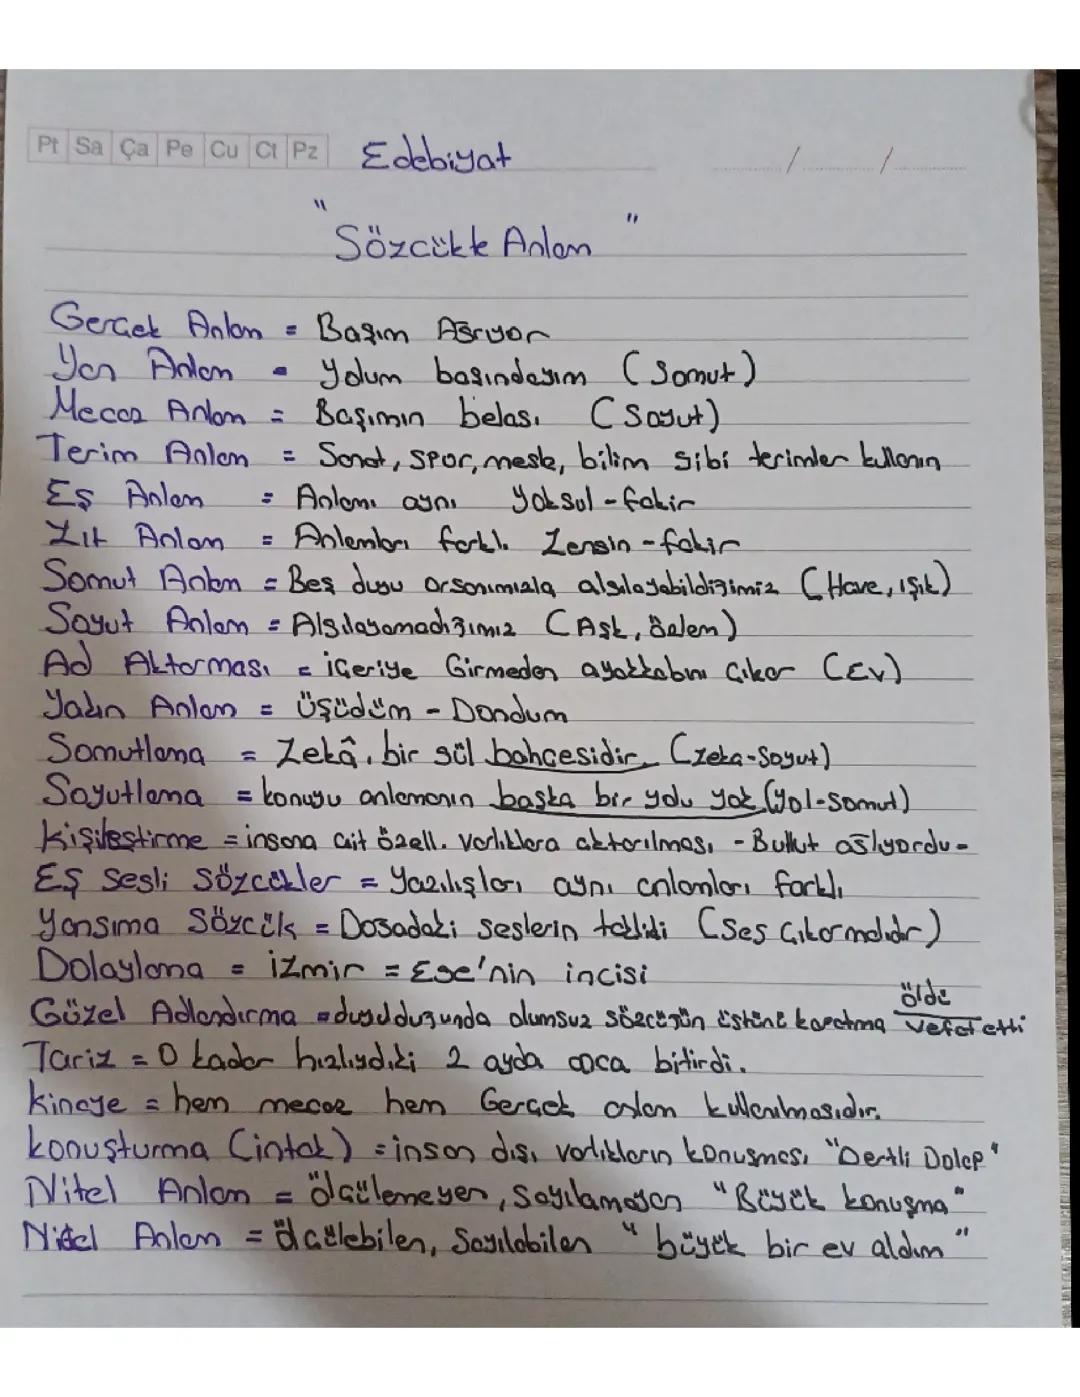 Pt Sa Ça Pe Cu Ct Pz Edebiyat / /
"Sözcükte Anlam"
Gerçek Anlam = Başım Ağrıyor
Yan Anlam = Yolum başındayım (Somut)
Mecaz Anlam = Başımın belası (Soyut)
Terim Anlam = Sanat, spor, mesle, bilim gibi terimler kullanın
Eş Anlam = Anlamı aynı Yoksul - fakir
Zıt Anlam = Anlamları farklı Zengin - fakir
Somut Anlam = Beş duyu organımızla algılayabildiğimiz (Hava, ışık)
Soyut Anlam = Algılayamadığımız (Aşk, özlem)
Ad Aktarması = içeriye Girmeden ayakkabını Çıkar (Ev)
Yakın Anlam = Üşüdüm - Dondum
Somutlama = Zekâ, bir gül bahçesidir. (zeka-Soyut)
Soyutlama = konuyu anlamanın başka bir yolu yok (yol-somut)
Kişileştirme = insana ait özell. varlıklara aktarılması - Bulut ağlıyordu -
Eş Sesli Sözcükler = Yazılışları aynı anlamları farklı
Yansıma Sözcük = Doğadaki seslerin taklidi (Ses Çıkarmalıdır)
Dolaylama = izmir = Ege'nin incisi
Güzel Adlandırma = duyulduğunda olumsuz sözcüğün üstünü kapatma öldü vefat etti
Tariz = O kadar hızlıydıki 2 ayda anca bitirdi.
Kinaye = hem mecaz hem Gerçek anlam kullanılmasıdır.
Konuşturma (intak) = insan dışı varlıkların konuşması "Dertli Dolap"
Nitel Anlam = ölçülemeyen, Sayılamayan "Büyük konuşma"
Nicel Anlam = ölçülebilen, Sayılabilen "büyük bir ev aldım"